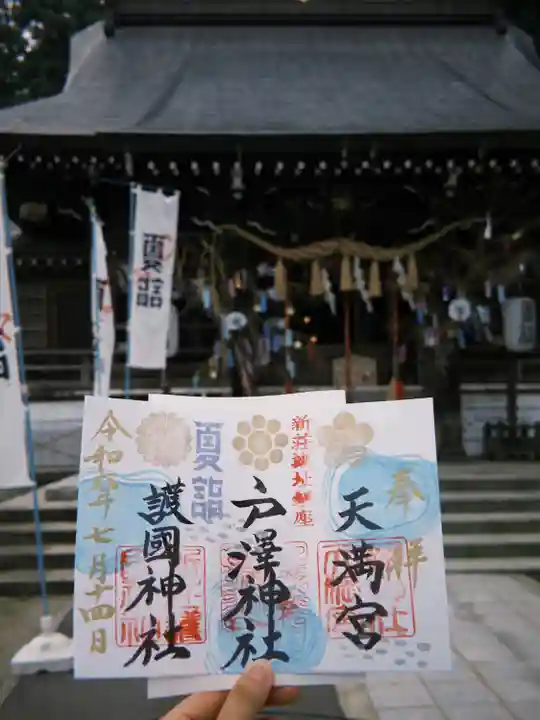 夏詣
奉拝
天満宮
新荘神社鎮座
戸澤神社
夏詣
護國神社
令和六年七月十四日